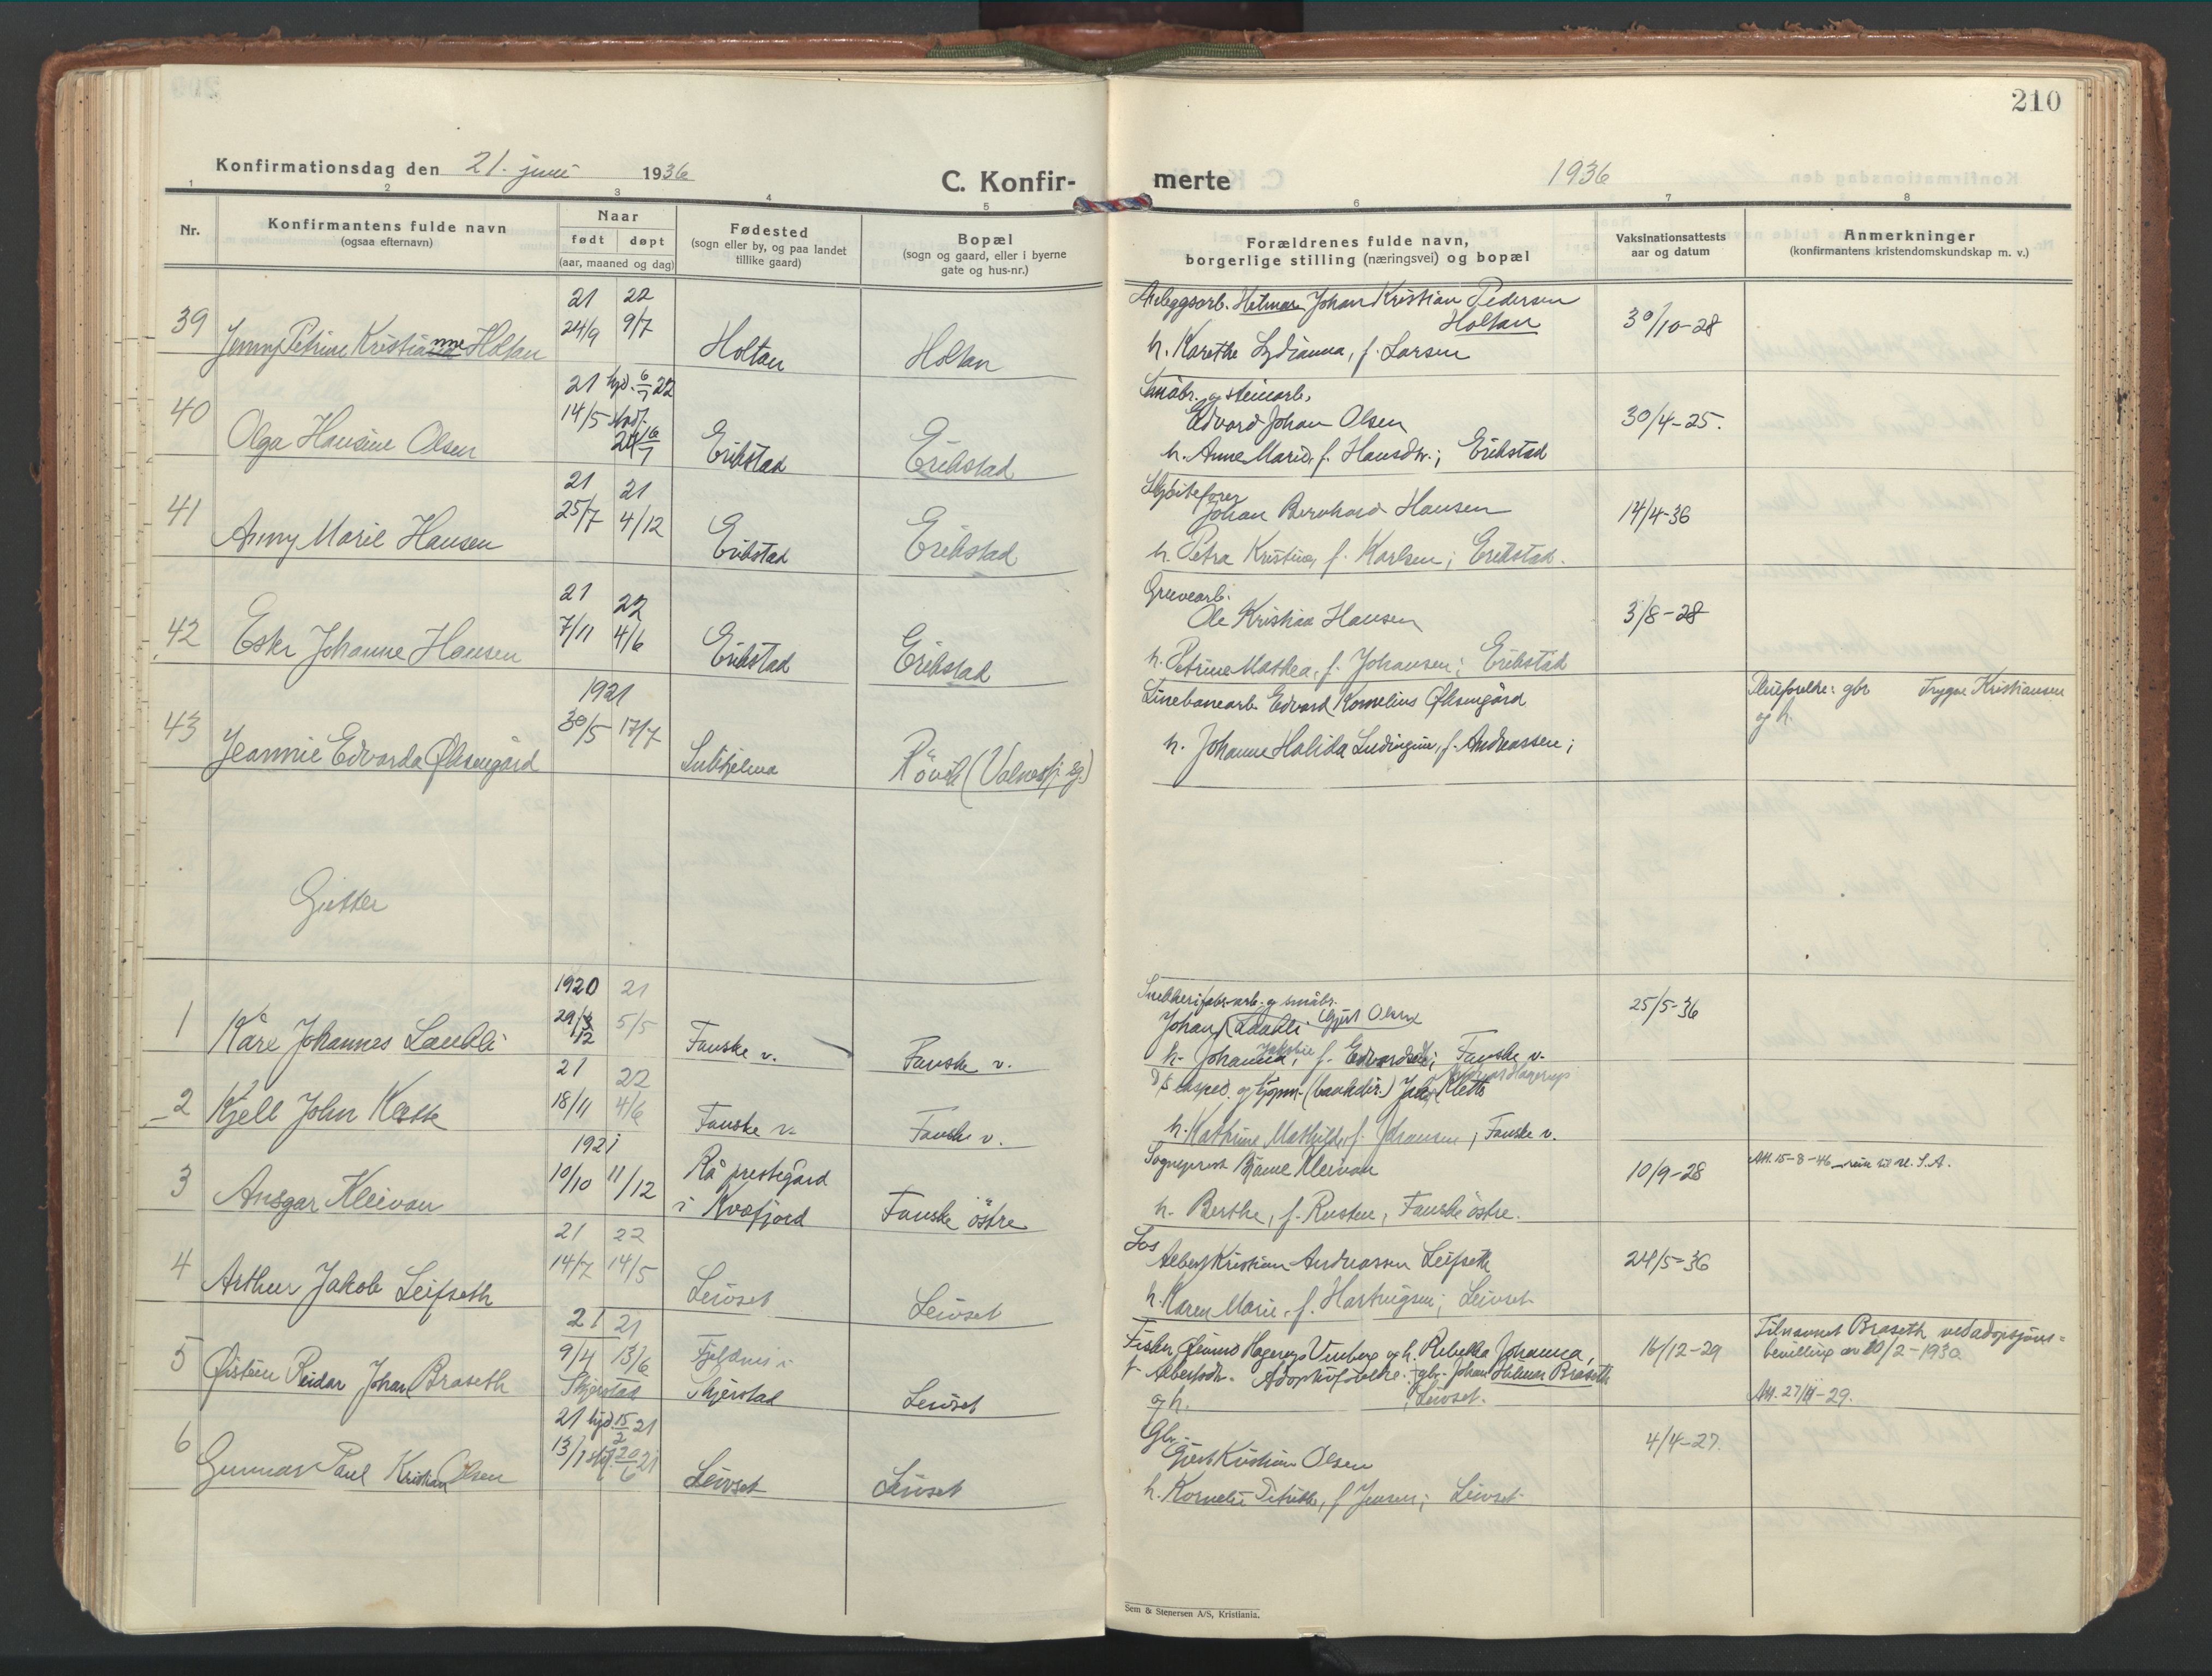 210
Konfirmationsdag den 21. juni 1936
C. Konfir-
merte
1936
1 2 3 4 5 6 7 8
Nr.
Konfirmantens fulde navn
(ogsaa efternavn)
Naar
født døpt
(aar, maaned og dag)
Fødested
(sogn eller by, og paa landet
tillike gaard)
Bopæl
(sogn og gaard, eller i byerne
gate og hus-nr.)
Forældrenes fulde navn,
borgerlige stilling (næringsvei) og bopæl
Vaksinationsattests
aar og datum
Anmerkninger
(konfirmantens kristendomskundskap m. v.)
39 Jenny Petrine Kristianne Holtan
21 22
24/9 9/7
Holtan
Holtan
Anleggsarb. Hilmar Johan Kristian Pedersen
Holtan
h. Karethe Lydianna, f. Larsen
30/10-28
40 Olga Hansine Olsen
21 hjd. 6/7 22
14/5 stadf.
Erikstad
Erikstad
Småbr. og steinarb.
Edvard Johan Olsen
h. Anne Marie, f. Hansdtr.; Erikstad
30/4-25.
41 Anny Marie Hansen
21 21
25/7 4/12
Erikstad
Erikstad
Skjöitefører
Johan Bernhard Hansen
h. Petra Kristine, f. Karlsen; Erikstad.
14/4-36
42 Ester Johanne Hansen
21 22
7/11 4/6
Erikstad
Erikstad
Gruvearb.
Ole Kristian Hansen
h. Petrine Mathea, f. Johansen; Erikstad
3/8-28
43 Jeannie Edvarda Øksengård
1921
30/5 17/7
Sulitjelma
Rövik (Valnesfj. sg.)
Linebanearb. Edvard Kornelius Øksengård
h. Johanne Halida, f. Andreassen;
Pleiforeldre: gbr Trygve Kristiansen
og h.
Gutter
1 Kåre Johannes Laukli
1920 21
29/12 5/5
Fauske v.
Fauske v.
Snekkerifabr.arb. og småbr.
Johan Laukli Gjert Olsen
h. Johanna, f. Edvardsdtr; Fauske v.
25/5-36
2 Kjell John Klette
21 22
18/11 4/6
Fauske v.
Fauske v.
D/s eksped. og kjøpm. (bankdir.) Klette
h. Kathrine Mathilde, f. Johansen; Fauske v.
3 Ansgar Kleivan
1921
10/10 11/12
Rå prestegård
i Kvæfjord
Fauske östre
Sogneprest Bjarne Kleivan
h. Berthe, f. Rusten, Fauske östre.
10/9-28
Att. 15-8-46
4 Arthur Jakob Leifseth
21 22
14/7 14/5
Leivset
Leivset
Los
Albert Kristian Andreassen Leifseth
h. Karen Marie, f. Hartvigsen; Leivset
24/5-36
5 Øistein Reidar Johan Braseth
21 21
9/4 13/6
Fjeldnes i
Skjerstad
Skjerstad
Leivset
Fisker Øivind Hagerup Venberg og h. Rebekka Johanna,
f. Albertsdtr. Adoptivforeldre: gbr. Johan Hilmar Braseth
og h. Leivset.
16/12-29
Tilnavnet Braseth ved adopsjons-
bevilling av 20/2-1930
Att. 27/11-29.
6 Gunnar Paul Kristian Olsen
21 hjd. 15/2 21
13/1 stf. 20/6 21
Leivset
Leivset
Gbr.
Gjert Kristian Olsen
h. Kornelie Petrikke, f. Jensen; Leivset
4/4-27
Sem & Stenersen A/S, Kristiania.